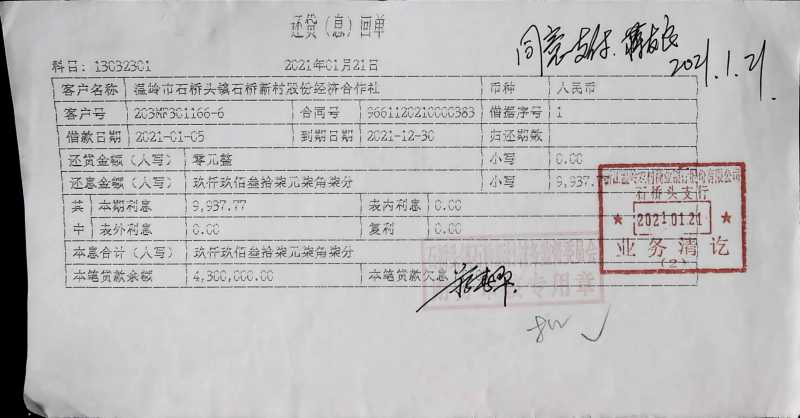 还贷（息）回单
同意支付
2021.1.21
科目：13032301 2021年01月21日
客户名称 温岭市石桥头镇石桥新村股份经济合作社 币种 人民币
客户号 203MF301166-6 合同号 9661120210000383 借据序号 1
借款日期 2021-01-05 到期日期 2021-12-30 归还期数
还贷金额（大写） 零元整 小写 0.00
还息金额（大写） 玖仟玖佰叁拾柒元柒角柒分 小写 9,937.7
其 本期利息 9,937.77 表内利息 0.00
中 表外利息 0.00 复利 0.00
本息合计（大写） 玖仟玖佰叁拾柒元柒角柒分
本笔贷款余额 4,300,000.00 本笔贷款欠息
浙江温岭农村商业银行股份有限公司
石桥头支行
2021.01.21
业务清讫
(2)
专用章